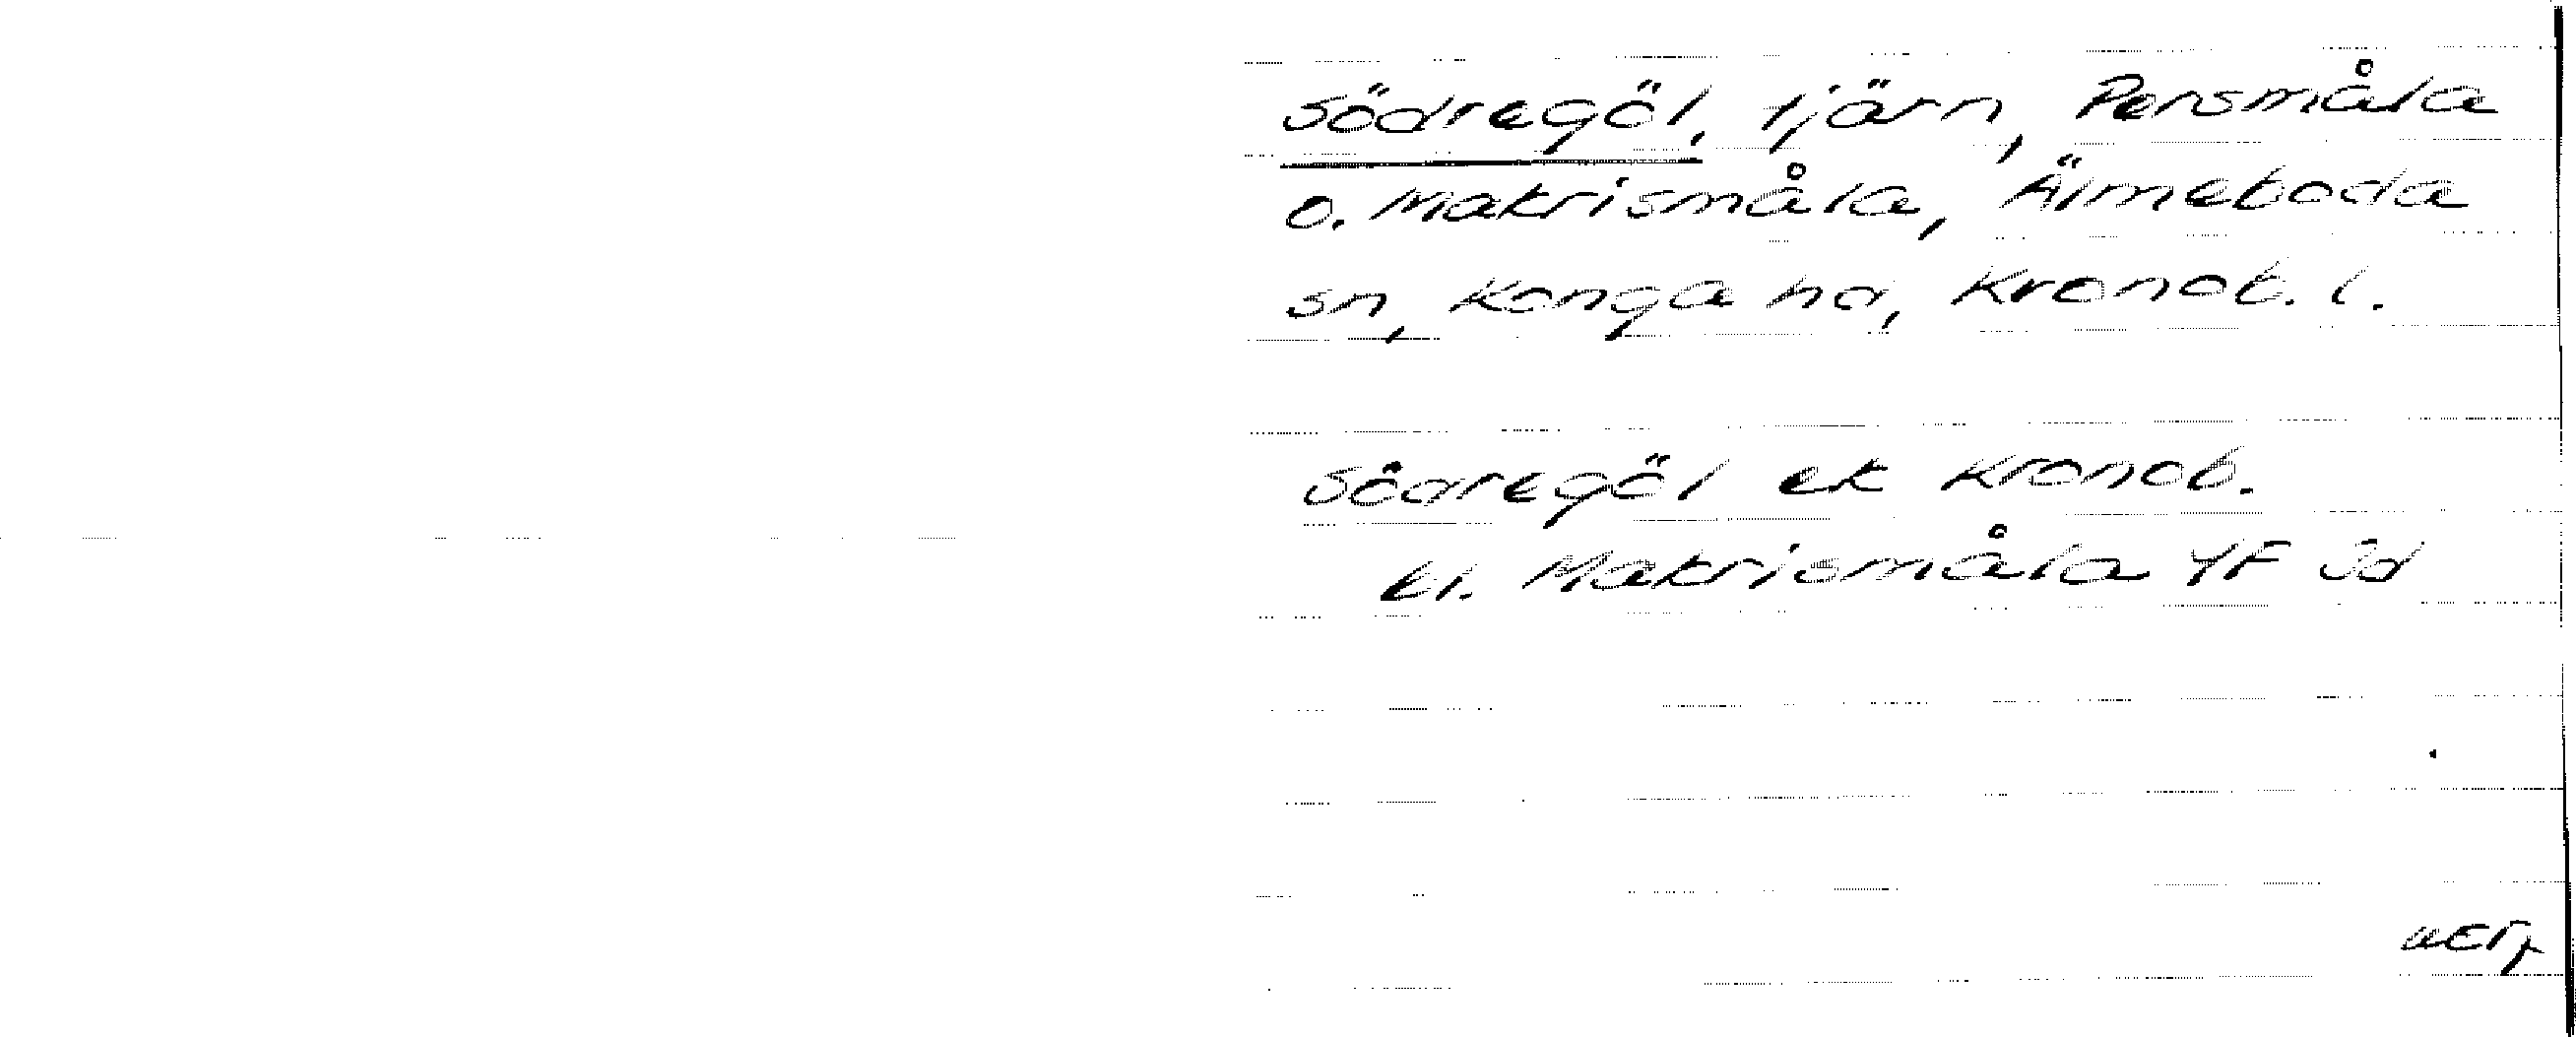 Södregöl, tjärn, Persmåla
o. Makrismåla, Älmeboda
sn, Konga hd, Kronob. l.
Södregöl ek Kronob.
bl. Makrismåla 4F 3d